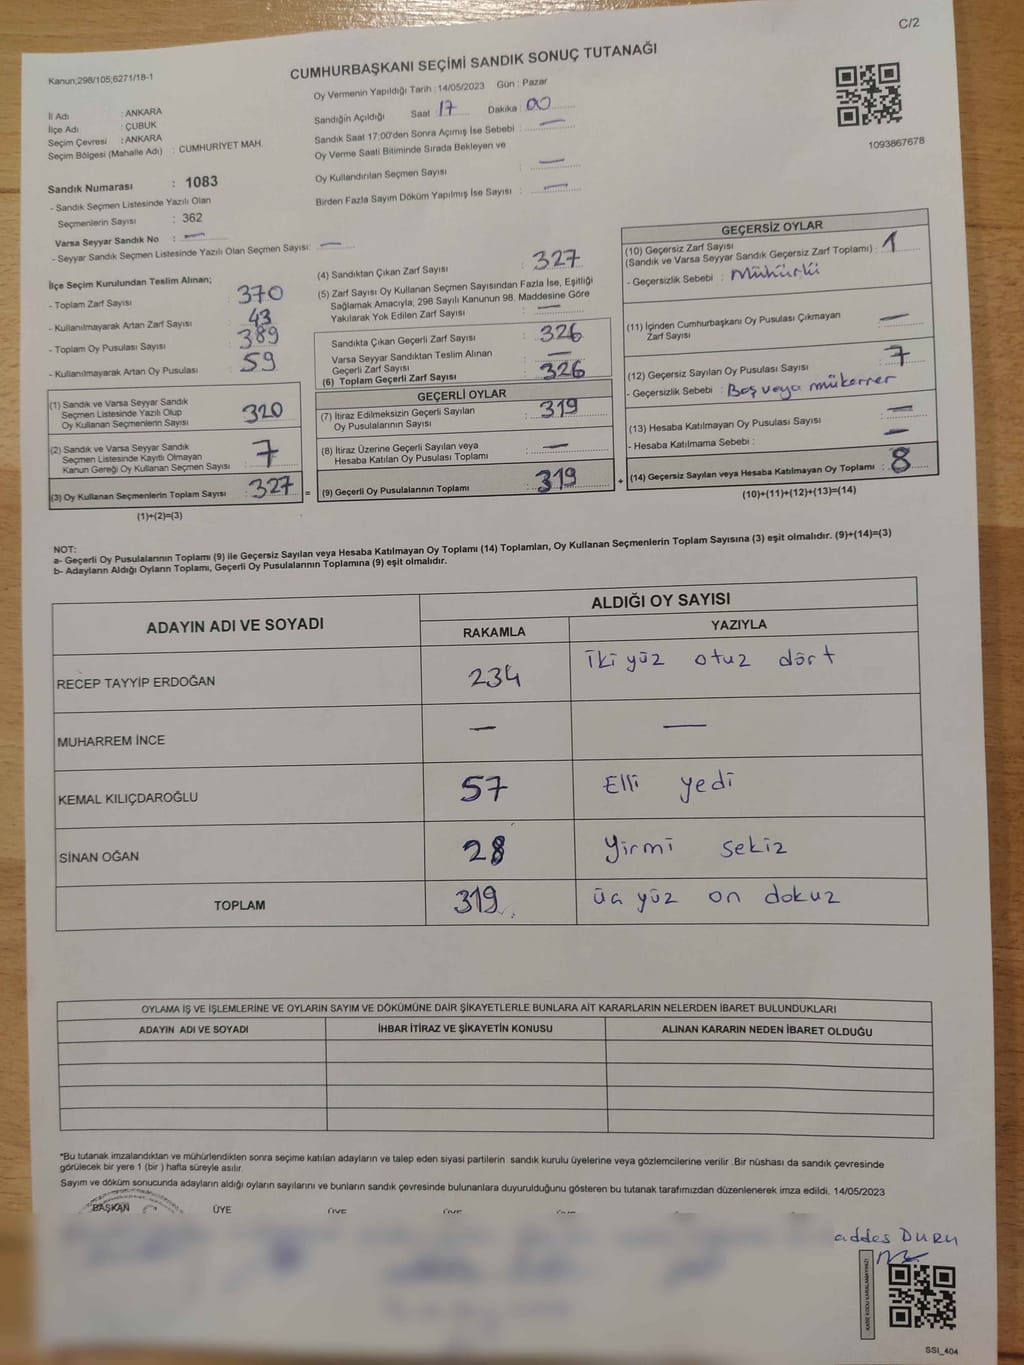 C/2
Kanun;298/105;6271/18-1
CUMHURBAŞKANI SEÇİMİ SANDIK SONUÇ TUTANAĞI
Oy Vermenin Yapıldığı Tarih : 14/05/2023 Gün : Pazar
İl Adı : ANKARA
İlçe Adı : ÇUBUK
Seçim Çevresi : ANKARA
Seçim Bölgesi (Mahalle Adı) : CUMHURİYET MAH.
Sandığın Açıldığı Saat 17 Dakika : 00
Sandık Saat 17:00'den Sonra Açımış İse Sebebi : —
Oy Verme Saati Bitiminde Sırada Bekleyen ve
Oy Kullandırılan Seçmen Sayısı : —
Birden Fazla Sayım Döküm Yapılmış İse Sayısı : —
1093867678
Sandık Numarası : 1083
- Sandık Seçmen Listesinde Yazılı Olan
Seçmenlerin Sayısı : 362
Varsa Seyyar Sandık No : —
- Seyyar Sandık Seçmen Listesinde Yazılı Olan Seçmen Sayısı: —
İlçe Seçim Kurulundan Teslim Alınan;
- Toplam Zarf Sayısı : 370
- Kullanılmayarak Artan Zarf Sayısı : 43
- Toplam Oy Pusulası Sayısı : 389
- Kullanılmayarak Artan Oy Pusulası : 59
(1) Sandık ve Varsa Seyyar Sandık
Seçmen Listesinde Yazılı Olup
Oy Kullanan Seçmenlerin Sayısı : 320
(2) Sandık ve Varsa Seyyar Sandık
Seçmen Listesinde Kayıtlı Olmayan
Kanun Gereği Oy Kullanan Seçmen Sayısı : 7
(3) Oy Kullanan Seçmenlerin Toplam Sayısı : 327 =
(1)+(2)=(3)
(4) Sandıktan Çıkan Zarf Sayısı : 327
(5) Zarf Sayısı Oy Kullanan Seçmen Sayısından Fazla İse, Eşitliği
Sağlamak Amacıyla; 298 Sayılı Kanunun 98. Maddesine Göre
Yakılarak Yok Edilen Zarf Sayısı : —
Sandıkta Çıkan Geçerli Zarf Sayısı : 326
Varsa Seyyar Sandıktan Teslim Alınan
Geçerli Zarf Sayısı : —
(6) Toplam Geçerli Zarf Sayısı : 326
GEÇERLİ OYLAR
(7) İtiraz Edilmeksizin Geçerli Sayılan
Oy Pusulasının Sayısı : 319
(8) İtiraz Üzerine Geçerli Sayılan veya
Hesaba Katılan Oy Pusulası Toplamı : —
(9) Geçerli Oy Pusulalarının Toplamı : 319 +
GEÇERSİZ OYLAR
(10) Geçersiz Zarf Sayısı
(Sandık ve Varsa Seyyar Sandık Geçersiz Zarf Toplamı) : 1
- Geçersizlik Sebebi : Mühürlü
(11) İçinden Cumhurbaşkanı Oy Pusulası Çıkmayan
Zarf Sayısı : —
(12) Geçersiz Sayılan Oy Pusulası Sayısı : 7
- Geçersizlik Sebebi : Boş veya mükerrer
(13) Hesaba Katılmayan Oy Pusulası Sayısı : —
- Hesaba Katılmama Sebebi : —
(14) Geçersiz Sayılan veya Hesaba Katılmayan Oy Toplamı : 8
(10)+(11)+(12)+(13)=(14)
NOT:
a- Geçerli Oy Pusulalarının Toplamı (9) ile Geçersiz Sayılan veya Hesaba Katılmayan Oy Toplamı (14) Toplamları, Oy Kullanan Seçmenlerin Toplam Sayısına (3) eşit olmalıdır. (9)+(14)=(3)
b- Adayların Aldığı Oyların Toplamı, Geçerli Oy Pusulalarının Toplamına (9) eşit olmalıdır.
ADAYIN ADI VE SOYADI ALDIĞI OY SAYISI
RAKAMLA YAZIYLA
RECEP TAYYİP ERDOĞAN 234 iki yüz otuz dört
MUHARREM İNCE — —
KEMAL KILIÇDAROĞLU 57 Elli yedi
SİNAN OĞAN 28 yirmi sekiz
TOPLAM 319 üç yüz on dokuz
OYLAMA İŞ VE İŞLEMLERİNE VE OYLARIN SAYIM VE DÖKÜMÜNE DAİR ŞİKAYETLERLE BUNLARA AİT KARARLARIN NELERDEN İBARET BULUNDUKLARI
ADAYIN ADI VE SOYADI İHBAR İTİRAZ VE ŞİKAYETİN KONUSU ALINAN KARARIN NEDEN İBARET OLDUĞU
*Bu tutanak imzalandıktan ve mühürlendikten sonra seçime katılan adayların ve talep eden siyasi partilerin sandık kurulu üyelerine veya gözlemcilerine verilir .Bir nüshası da sandık çevresinde
görülecek bir yere 1 (bir ) hafta süreyle asılır.
Sayım ve döküm sonucunda adayların aldığı oyların sayılarını ve bunların sandık çevresinde bulunanlara duyurulduğunu gösteren bu tutanak tarafımızdan düzenlenerek imza edildi. 14/05/2023
BAŞKAN ÜYE ÜYE ÜYE ÜYE
addes DURU
KARE KODU KARALAMAYINIZ!
SSI_404